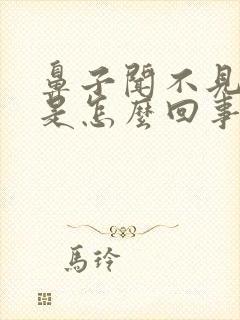 鼻子聞不見
是怎麼回事
馬玲